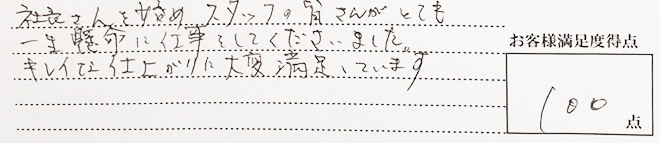 社長さんを始め スタッフの皆さんがとても
一生懸命に仕事をしてくださいました。
キレイな仕上がりに大変満足しています
お客様満足度得点
100点